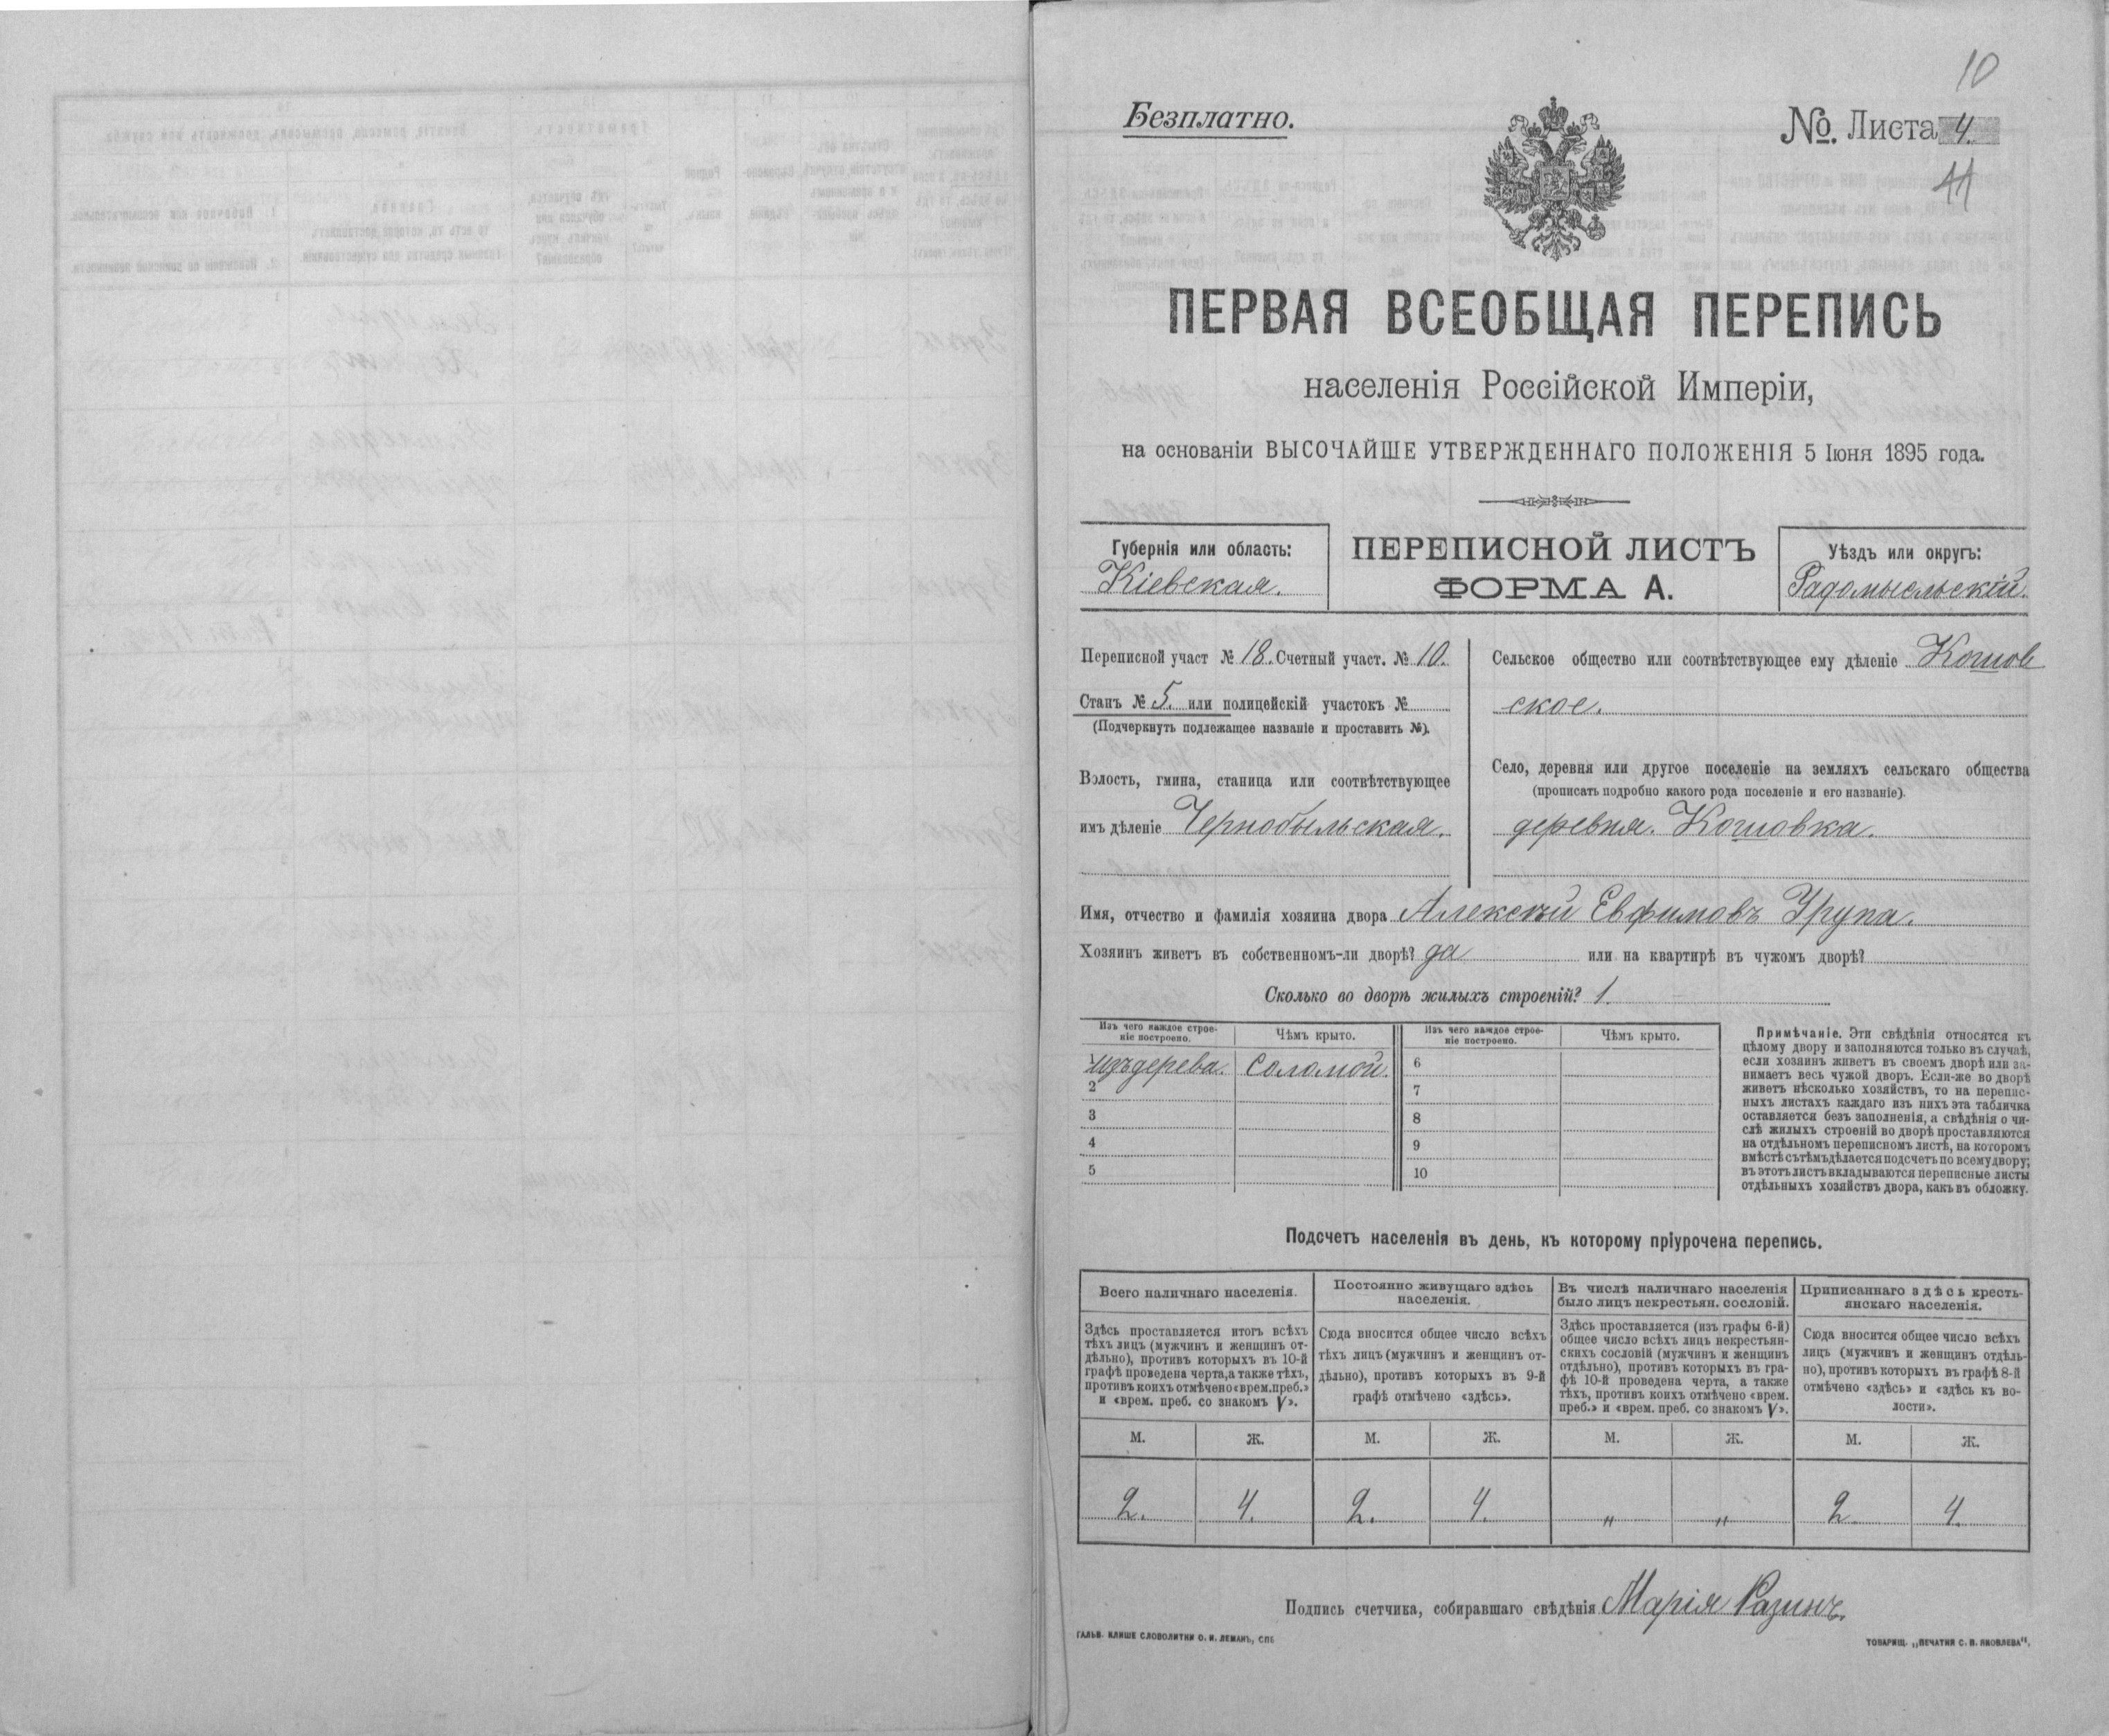 10
Безплатно.
№. Листа 4.
11
ПЕРВАЯ ВСЕОБЩАЯ ПЕРЕПИСЬ
населенія Россійской Имперіи,
на основаніи ВЫСОЧАЙШЕ УТВЕРЖДЕННАГО ПОЛОЖЕНІЯ 5 Іюня 1895 года.
Губернія или область:
Кіевская.
ПЕРЕПИСНОЙ ЛИСТЪ
ФОРМА А.
Уѣздъ или округъ:
Радомысльскій.
Переписной участ № 18. Счетный участ. № 10.
Станъ № 5. или полицейскій участокъ №
(Подчеркнуть подлежащее названіе и проставить №).
Волость, гмина, станица или соотвѣтствующее
имъ дѣленіе Чернобыльская.
Сельское общество или соотвѣтствующее ему дѣленіе Кошов
ское.
Село, деревня или другое поселеніе на земляхъ сельскаго общества
(прописать подробно какого рода поселеніе и его названіе).
деревня. Кошовка.
Имя, отчество и фамилія хозяина двора Алексѣй Евфимовъ Урупа.
Хозяинъ живетъ въ собственномъ-ли дворѣ? да или на квартирѣ въ чужомъ дворѣ?
Сколько во дворѣ жилыхъ строеній? 1.
Изъ чего каждое строе-
ніе построено.
Чѣмъ крыто.
1 изъ дерева. Соломой.
2
3
4
5
Изъ чего каждое строе-
ніе построено.
Чѣмъ крыто.
6
7
8
9
10
Примѣчаніе. Эти свѣдѣнія относятся къ
цѣлому двору и заполняются только въ случаѣ,
если хозяинъ живетъ въ своемъ дворѣ или за-
нимаетъ весь чужой дворъ. Если-же во дворѣ
живетъ нѣсколько хозяйствъ, то на перепис-
ныхъ листахъ каждаго изъ нихъ эта табличка
оставляется безъ заполненія, а свѣдѣнія о чи-
слѣ жилыхъ строеній во дворѣ проставляются
на отдѣльномъ переписномъ листѣ, на которомъ
вмѣстѣ съ тѣмъ дѣлается подсчетъ по всему двору;
въ этотъ листъ вкладываются переписные листы
отдѣльныхъ хозяйствъ двора, какъ въ обложку.
Подсчетъ населенія въ день, къ которому пріурочена перепись.
Всего наличнаго населенія.
Здѣсь проставляется итогъ всѣхъ
тѣхъ лицъ (мужчинъ и женщинъ от-
дѣльно), противъ которыхъ въ 10-й
графѣ проведена черта, а также тѣхъ,
противъ коихъ отмѣчено «врем. преб.»
и «врем. преб. со знакомъ V».
Постоянно живущаго здѣсь
населенія.
Сюда вносится общее число всѣхъ
тѣхъ лицъ (мужчинъ и женщинъ от-
дѣльно), противъ которыхъ въ 9-й
графѣ отмѣчено «здѣсь».
Въ числѣ наличнаго населенія
было лицъ некрестьян. сословій.
Здѣсь проставляется (изъ графы 6-й)
общее число всѣхъ лицъ некрестьян-
скихъ сословій (мужчинъ и женщинъ
отдѣльно), противъ которыхъ въ гра-
фѣ 10-й проведена черта, а также
тѣхъ, противъ коихъ отмѣчено «врем.
преб.» и «врем. преб. со знакомъ V».
Приписаннаго здѣсь кресть-
янскаго населенія.
Сюда вносится общее число всѣхъ
лицъ (мужчинъ и женщинъ отдѣль-
но), противъ которыхъ въ графѣ 8-й
отмѣчено «здѣсь» и «здѣсь къ во-
лости».
М. Ж. М. Ж. М. Ж. М. Ж.
2. 4. 2. 4. „ „ 2 4.
Подпись счетчика, собиравшаго свѣдѣнія Марія Разинъ.
ГАЛЬВ. КЛИШЕ СЛОВОЛИТНИ О. И. ЛЕМАНЪ, СПБ
ТОВАРИЩ. „ПЕЧАТНЯ С. П. ЯКОВЛЕВА“.